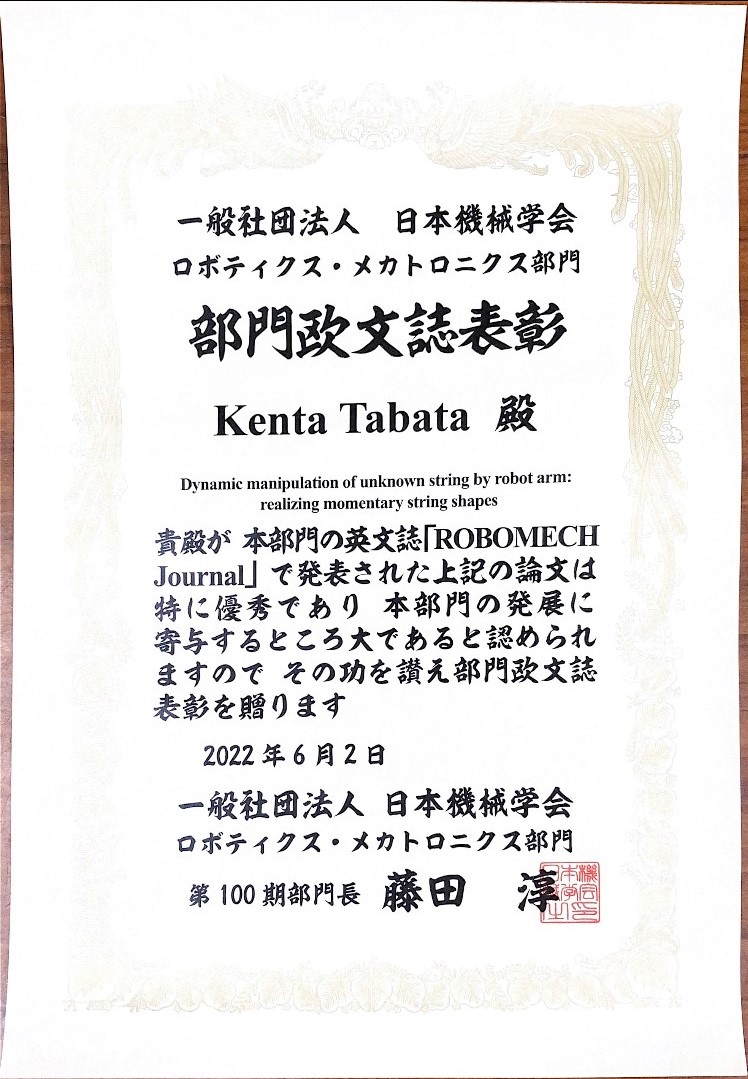 一般社団法人　日本機械学会
ロボティクス・メカトロニクス部門
部門欧文誌表彰
Kenta Tabata 殿
Dynamic manipulation of unknown string by robot arm:
realizing momentary string shapes
貴殿が 本部門の英文誌「ROBOMECH
Journal」で発表された上記の論文は
特に優秀であり 本部門の発展に
寄与するところ大であると認められ
ますので その功を讃え部門欧文誌
表彰を贈ります
2022年6月2日
一般社団法人 日本機械学会
ロボティクス・メカトロニクス部門
第100期部門長 藤田 淳